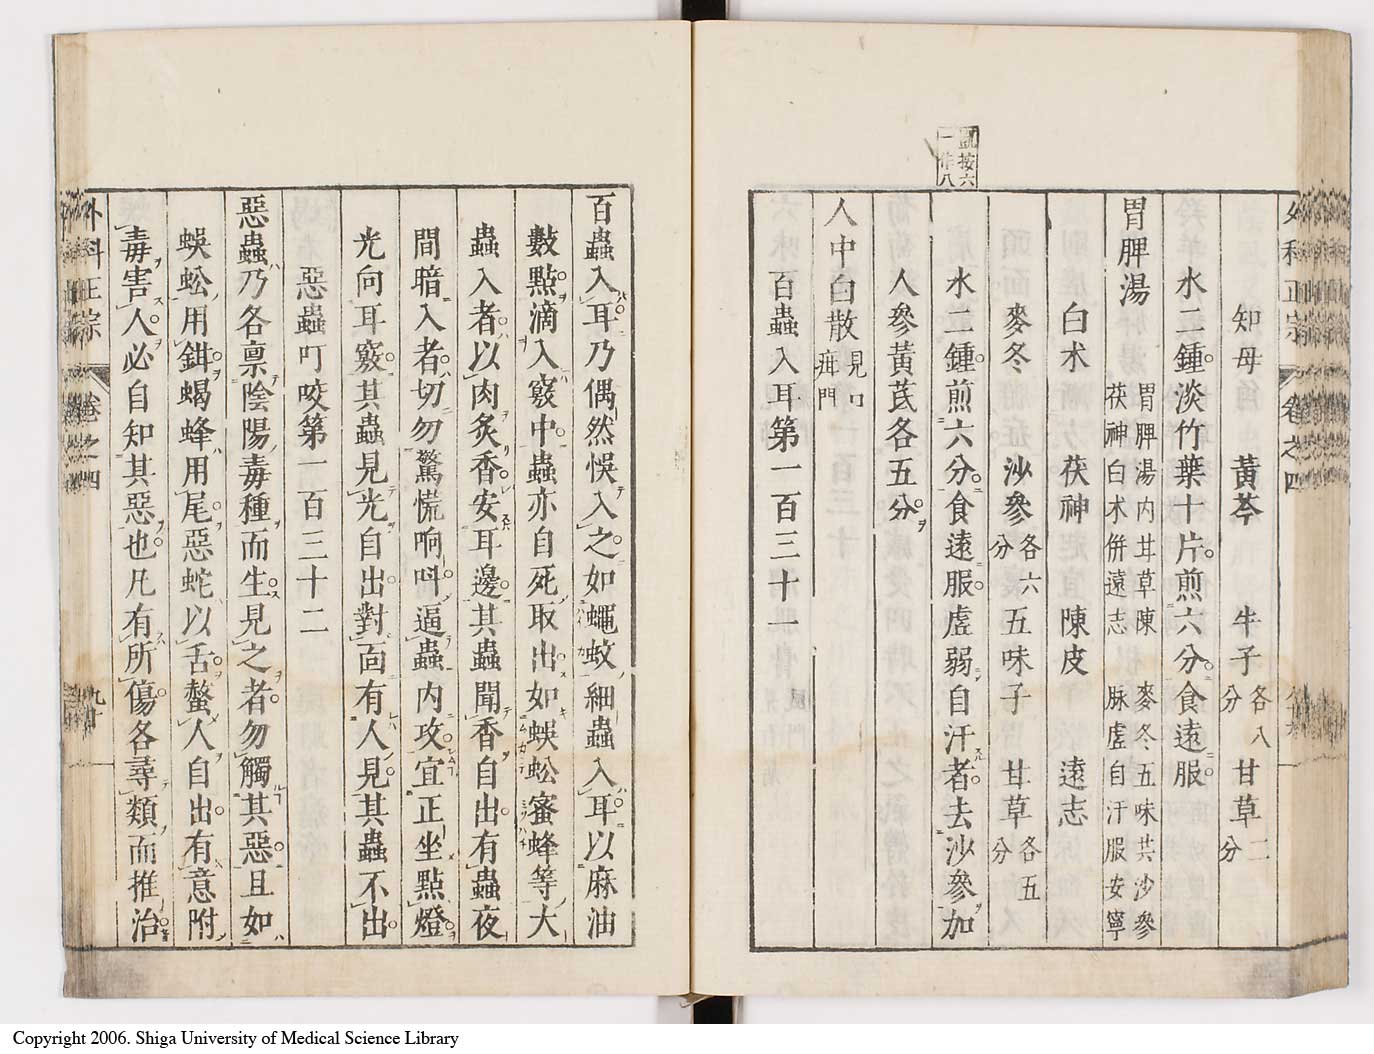 外科正宗 卷之四
知母 黃芩 牛子各八分 甘草二分
水二鍾淡竹葉十片煎六分食遠服
胃脾湯 胃脾湯內甘草陳 麥冬五味共沙參
茯神白朮併遠志 脉虛自汗服安寧
白朮 茯神 陳皮 遠志
麥冬 沙參各六分 五味子 甘草各五分
水二鍾煎六分食遠服虛弱自汗者去沙參加
按六
一作八
人參黃芪各五分
人中白散見口疳門
百蟲入耳第一百三十一
百蟲入耳乃偶然悞入之如蠅蚊細蟲入耳以麻油
數點滴入竅中蟲亦自死取出如蜈蚣蜜蜂等大
蟲入者以肉炙香安耳邊其蟲聞香自出有蟲夜
間暗入者切勿驚慌响呌逼蟲內攻宜正坐點燈
光向耳竅其蟲見光自出對面有人見其蟲不出
惡蟲叮咬第一百三十二
惡蟲乃各禀陰陽毒種而生見之者勿觸其惡且如
蜈蚣用鉗蝎蜂用尾惡蛇以舌螫人自出有意附
毒害人必自知其惡也凡有所傷各尋類而推治
外科正宗 卷之四 九十
Copyright 2006. Shiga University of Medical Science Library